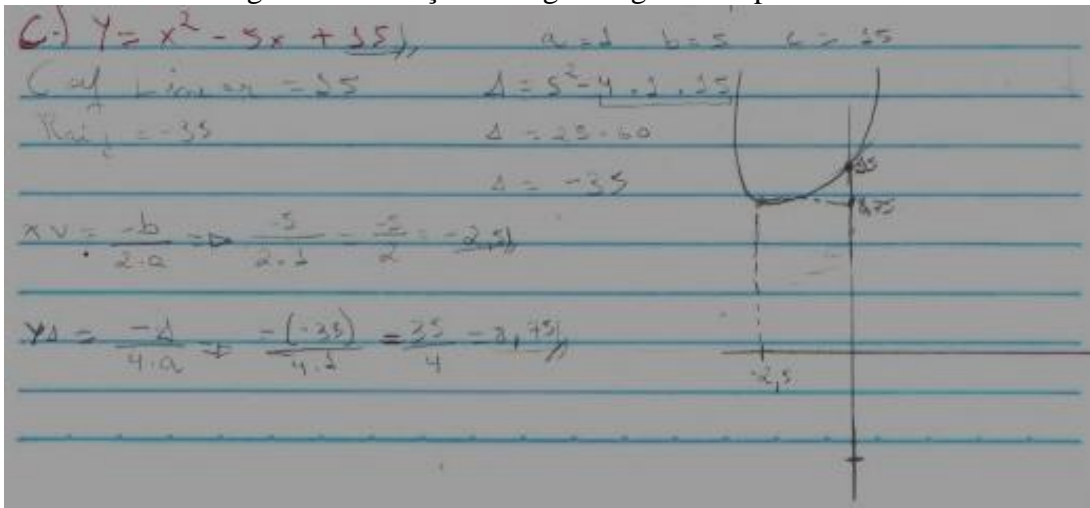 C-) Y = x² - 5x + 15//, a = 1 b = 5 c = 15
Coef Linear = 15 Δ = 5² - 4 . 1 . 15
Raiz = -35 Δ = 25 - 60
Δ = -35
15
8,75
xv = -b/2·a => -5/2·1 = -5/2 = -2,5//
yΔ = -Δ/4·a => -(-35)/4·1 = 35/4 = 8,75//
-2,5